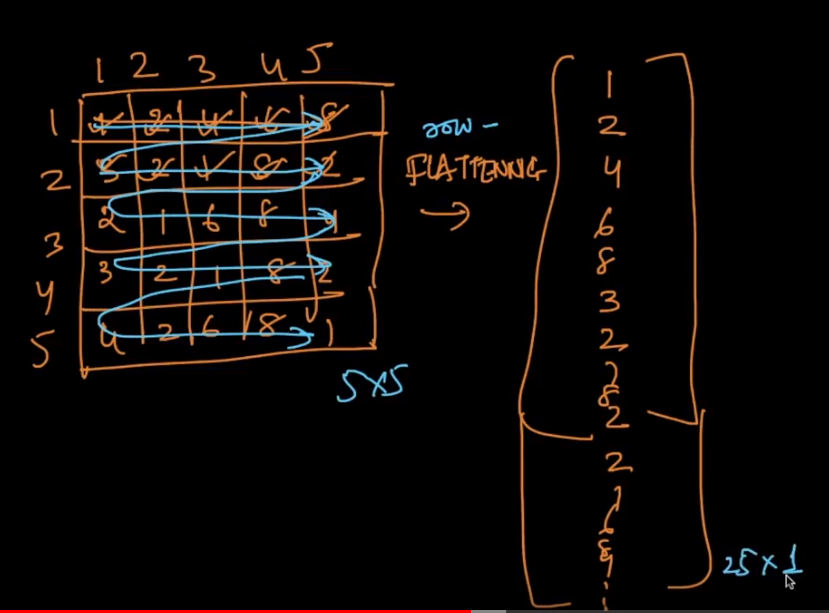 1 2 3 4 5
1 1 2 4 6 8
2 2 1 8 2
3 2 1 6 8 1
4 3 2 1 8 2
5 4 2 6 8 1
5x5
row-
FLATTENNG
→
1
2
4
6
8
3
2
1
8
2
2
1
6
8
1
25 x 1